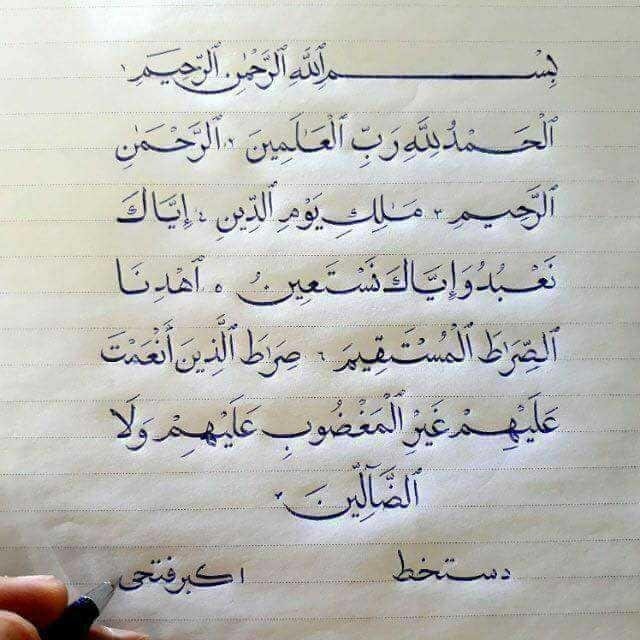 بِسْمِ ٱللَّهِ ٱلرَّحْمَٰنِ ٱلرَّحِيمِ ١
ٱلْحَمْدُ لِلَّهِ رَبِّ ٱلْعَـٰلَمِينَ ٢ ٱلرَّحْمَـٰنِ
ٱلرَّحِيمِ ٣ مَـٰلِكِ يَوْمِ ٱلدِّينِ ٤ إِيَّاكَ
نَعْبُدُ وَإِيَّاكَ نَسْتَعِينُ ٥ ٱهْدِنَا
ٱلصِّرَاطَ ٱلْمُسْتَقِيمَ ٦ صِرَاطَ ٱلَّذِينَ أَنْعَمْتَ
عَلَيْهِمْ غَيْرِ ٱلْمَغْضُوبِ عَلَيْهِمْ وَلَا
ٱلضَّآلِّينَ ٧
دستخط اکبر فتحی